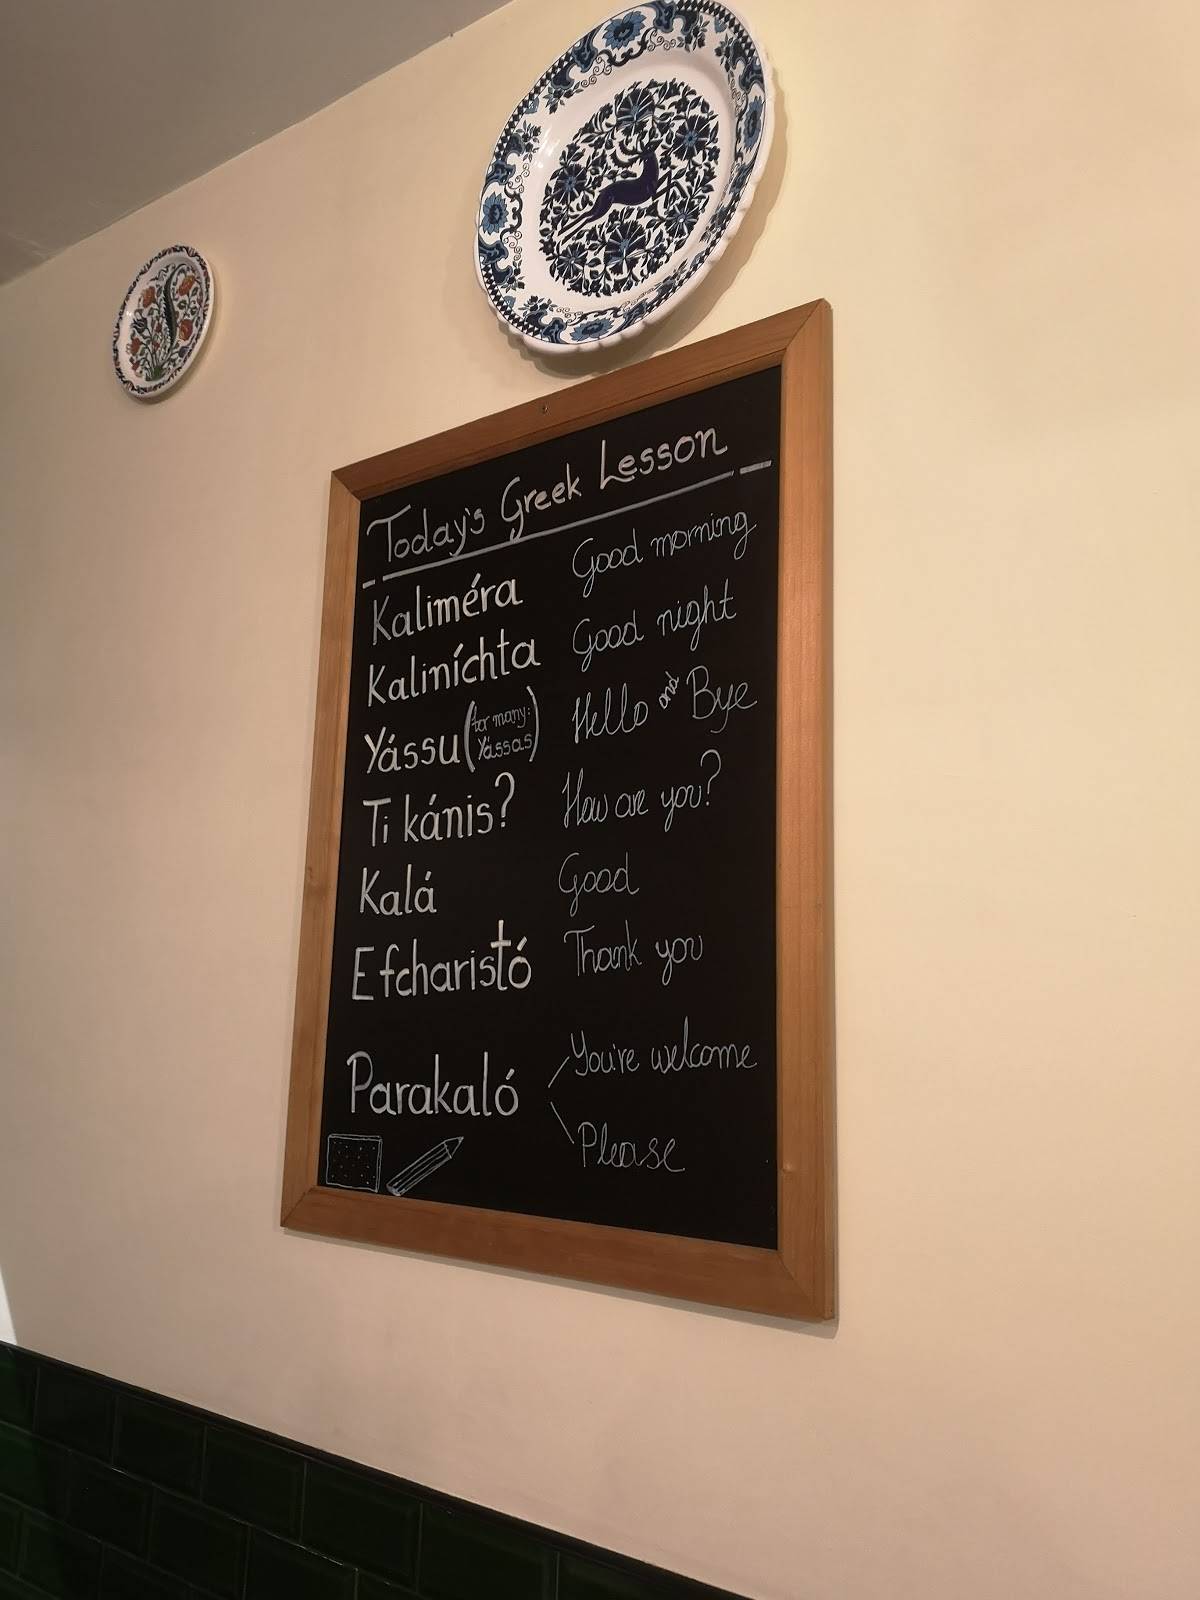 Today's Greek Lesson
Kaliméra Good morning
Kaliníchta Good night
Yássu (to many: Yássas) Hello and Bye
Ti kánis? How are you?
Kalá Good
Efcharistó Thank you
Parakaló You're welcome
Please